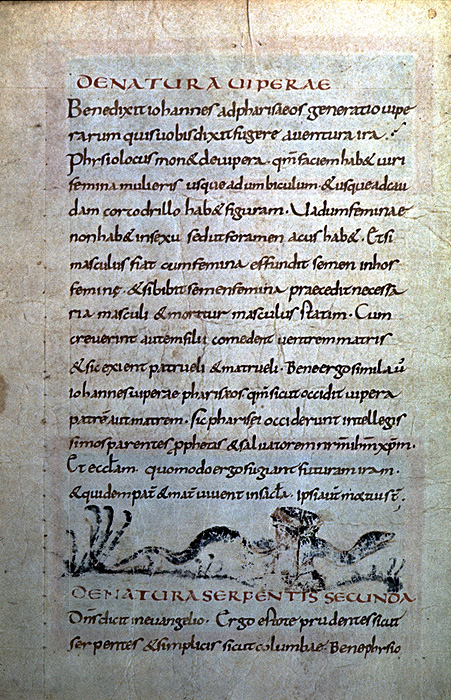 DE NATURA UIPERAE
Bene dixit iohannes ad pharisaeos generatio uipe
rarum quis uobis dixit fugere a uentura ira.
Physiolocus mon& de uipera. qm faciem hab& uiri
femina mulieris usque ad umbiculum. & usque ad cau
dam corcodrillo hab& figuram. Uadum feminae
non hab& in sexu sed ut foramen acus hab&. Et si
masculus fiat cum femina effundit semen in hos
feminę. & si bibit semen femina praecedit necessa
ria masculi & moritur masculus statim. Cum
creuerint autem filii comedent uentrem matris
& sic exient patrueli & matrueli. Bene ergo similauit
iohannes uiperae phariseos. qm sicut occidit uipera
patrē aut matrem. sic pharisei occiderunt intellegi
simos parentes, pphetis & saluatorem nrm ihm xpm.
Et eccłam. quomodo ergo fugiant futuram iram.
& quidem pat& & mat& uiuent in sęcła. ipsi aut mortui st
DE NATURA SERPENTIS SECUNDA
Dns dicit in euangelio. Ergo estote prudentes sicut
serpentes & simplicis sicut columbae. Bene phisio